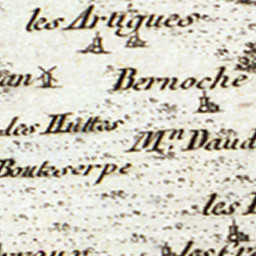 les Artigues
Bernoche
des Huttes
Mⁿ. Daud
Bouteserpe
les